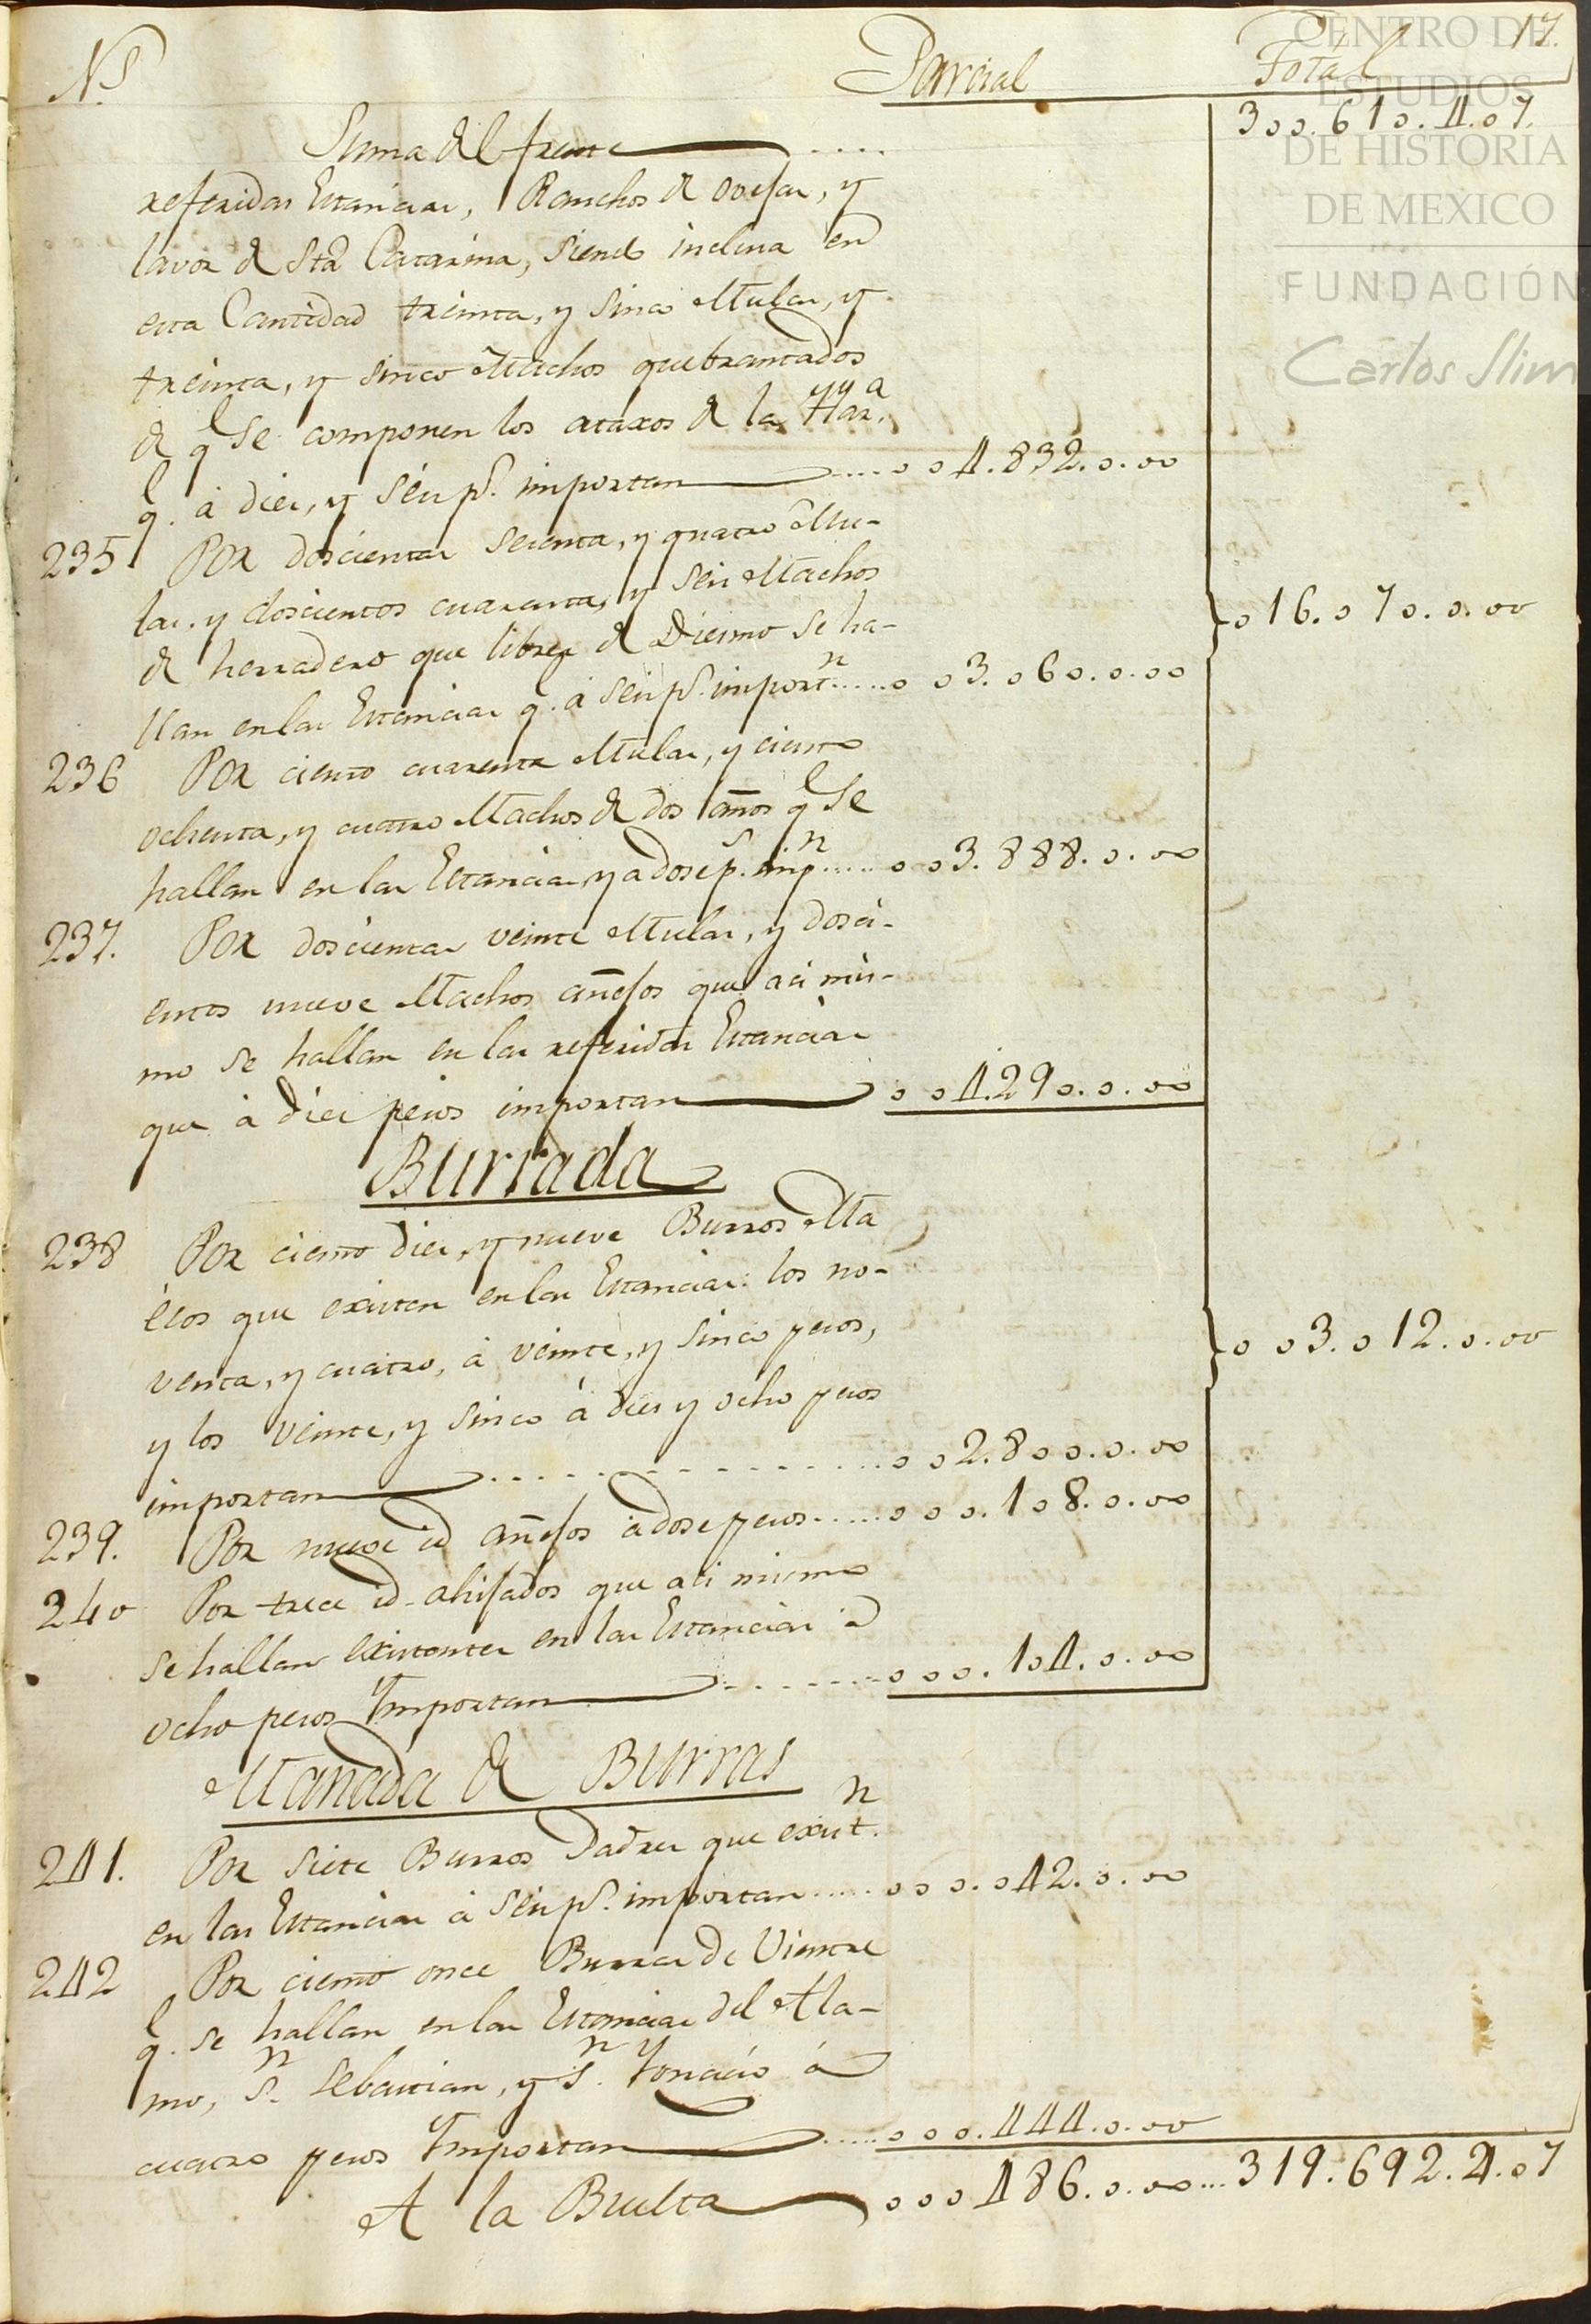 Nº Parcial Total 17.
Suma del frente .... 300.610.4.07.
referidas Estancias, Ranchos de ovejas, y
lavor de Sta Catarina, siendo inclusa en
esta Cantidad treinta, y sinco Mulas, y
treinta, y sinco Machos quebrantados
de q.l se componen los ataxos de la Haz.da
q.l á diez, y seis p.s importan .... 004.832.0.00
235 Por doscientas sesenta, y quatro Mu-
las, y doscientos cuarenta, y seis Machos
de herradero que libres de Diesmo se ha-
llan en las Estancias q. á seis p.s import.n .... 003.060.0.00
}016.070.0.00
236 Por ciento cuarenta Mulas, y ciento
ochenta, y cuatro Machos de dos años q.l se
hallan en las Estancias, y a dose p.s imp.n .... 003.888.0.00
237. Por doscientas veinte Mulas, y dosci-
entos nueve Machos añejos que asi mis-
mo se hallan en las referidas Estancias
que á diez pesos importan 004.290.0.00
Burrada
238 Por ciento diez, y nueve Burros Ma
écos que existen en las Estancias: los no-
venta, y cuatro, á veinte, y sinco pesos,
y los veinte, y sinco á diez y ocho pesos
importan .... 002.800.0.00
}003.012.0.00
239. Por nueve id añejos á dose pesos .... 000.108.0.00
240 Por trece id. ahijados que asi mismo
se hallan existentes en las Estancias á
ocho pesos Importan .... 000.104.0.00
Manada de Burras
241. Por siete Burros Padres que exist.n
en las Estancias á seis p.s importan .... 000.042.0.00
242 Por ciento once Burras de Vientre
q.l se hallan en las Estancias del Ala-
mo, S.n Sebastian, y S.n Ygnacio á
cuatro pesos Importan .... 000.444.0.00
A la Buelta 000486.0.00 ... 319.692.4.07
CENTRO DE
ESTUDIOS
DE HISTORIA
DE MEXICO
FUNDACIÓN
Carlos Slim